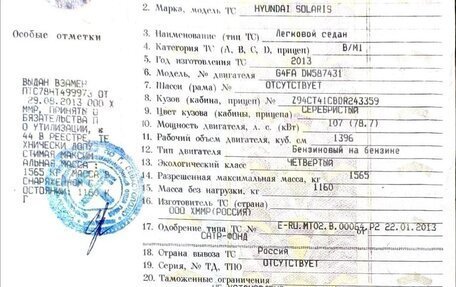 2. Марка, модель ТС HYUNDAI SOLARIS
Особые отметки
3. Наименование (тип ТС) Легковой седан
4. Категория ТС (А, В, С, D, прицеп) B/M1
5. Год изготовления ТС 2013
6. Модель, № двигателя G4FA DW587431
7. Шасси (рама) № ОТСУТСТВУЕТ
8. Кузов (кабина, прицеп) № Z94CT41CBDR243359
9. Цвет кузова (кабины, прицепа) СЕРЕБРИСТЫЙ
10. Мощность двигателя, л. с. (кВт) 107 (78.7)
11. Рабочий объем двигателя, куб. см 1396
12. Тип двигателя Бензиновый на бензине
13. Экологический класс ЧЕТВЕРТЫЙ
14. Разрешенная максимальная масса, кг 1565
15. Масса без нагрузки, кг 1160
16. Изготовитель ТС (страна)
ООО ХММР(РОССИЯ)
17. Одобрение типа ТС № E-RU.MT02.B.00064.P2 22.01.2013
САТР-ФОНД
18. Страна вывоза ТС Россия
19. Серия, № ТД, ТПО ОТСУТСТВУЕТ
20. Таможенные ограничения
ВЫДАН ВЗАМЕН
ПТС78НТ499973 ОТ
29.08.2013 ООО Х
ММР, ПРИНЯТО О
БЯЗАТЕЛЬСТВО П
О УТИЛИЗАЦИИ, №
44 В РЕЕСТРЕ ТЕ
ХНИЧЕСКИ ДОПУ
СТИМАЯ МАКСИМ
АЛЬНАЯ МАССА 1
565 КГ, МАССА В
СНАРЯЖЕННОМ С
ОСТОЯНИИ 1160 К
Г